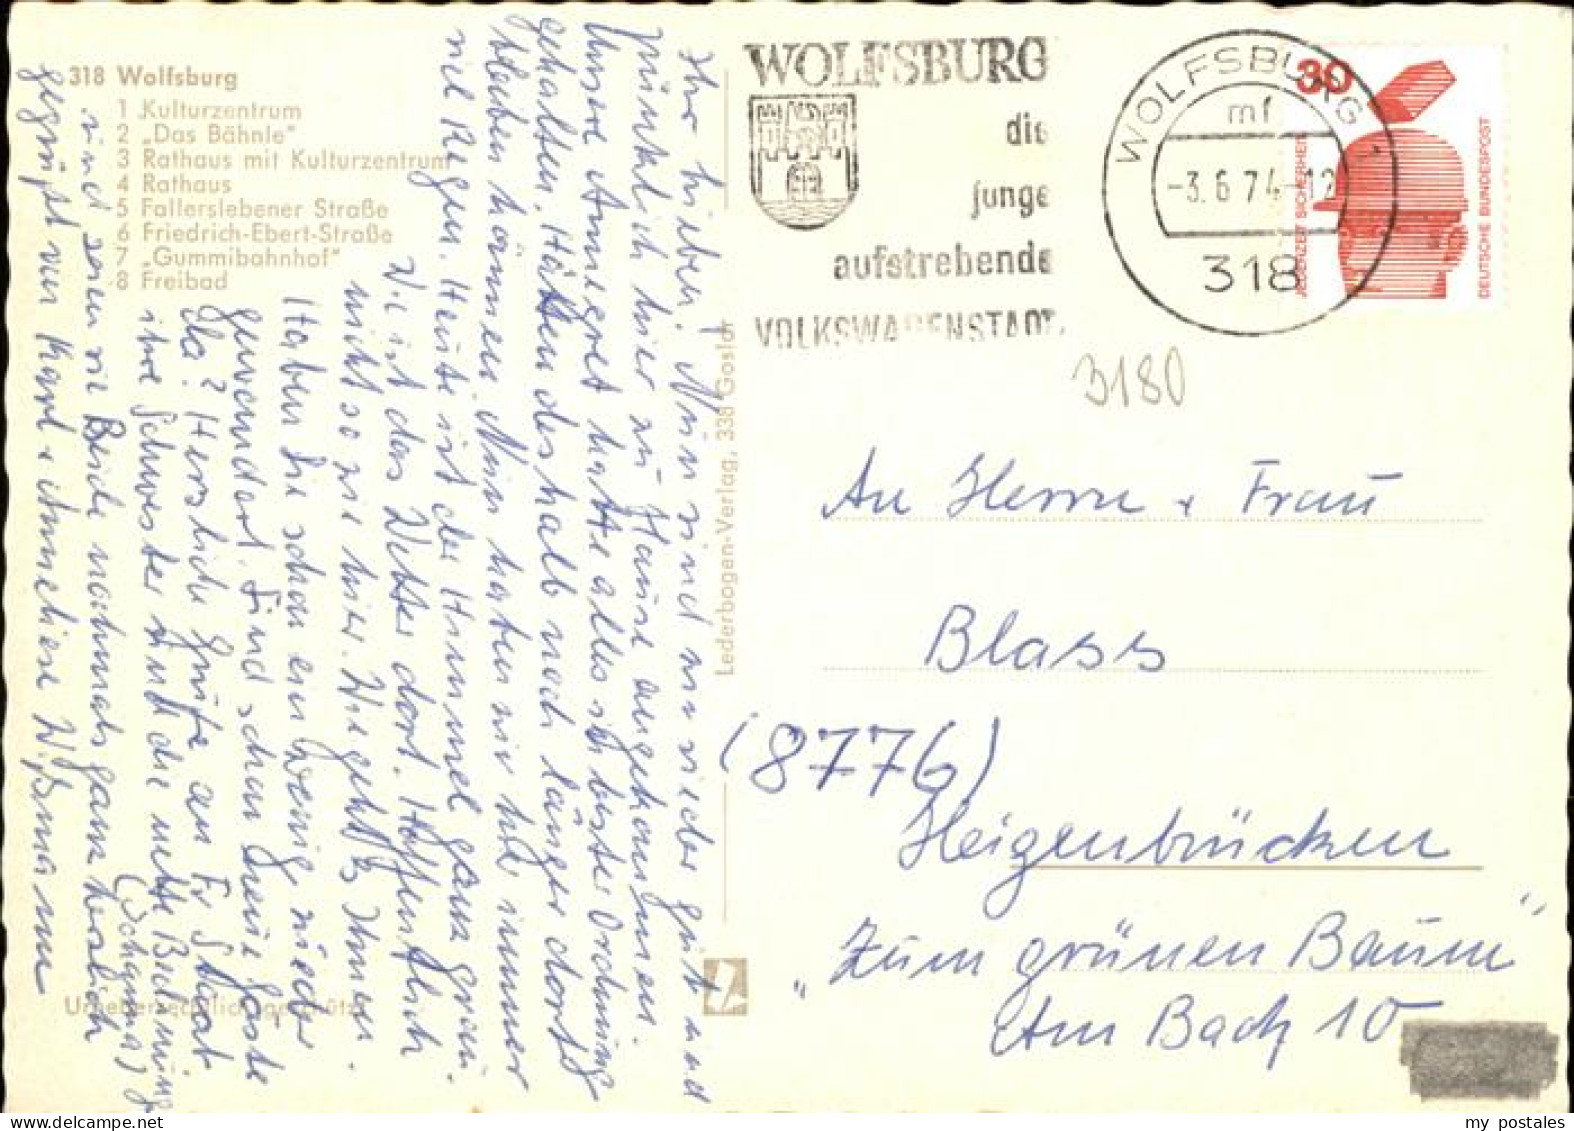 318 Wolfsburg
1 Kulturzentrum
2 „Das Bähnle"
3 Rathaus mit Kulturzentrum
4 Rathaus
5 Fallerslebener Straße
6 Friedrich-Ebert-Straße
7 „Gummibahnhof"
8 Freibad
Ihr Lieben! Nun sind wir wieder gut und
pünktlich hier zu Hause angekommen.
Unsere Annegret hatte alles in bester Ordnung
gehalten. Hätten deshalb noch länger dort
bleiben können. Nun haben wir hier immer
viel Regen. Heute ist der Himmel ganz grau.
Wie ist das Wetter dort. Hoffentlich
nicht so wie hier. Wie geht's Ihnen.
Haben Sie schon ein wenig wieder
Sind schon neue Gäste
da? Herzliche Grüße an Fr
ihre Schwester und die nette Bedienung
(Johanna)
und seien sie Beide nochmals ganz herzlich
gegrüßt von Karl + Anneliese Wißmann
Urheberrechtlich geschützt
Lederbogen-Verlag, 338 Goslar
WOLFSBURG
die
junge
aufstrebende
VOLKSWAGENSTADT
WOLFSBURG 1
mf
-3.6.74-12
318
30
JEDERZEIT SICHERHEIT
DEUTSCHE BUNDESPOST
3180
An Herrn + Frau
Blass
(8776)
Heigenbrücken
"Zum grünen Baum"
Am Bach 10
my postales